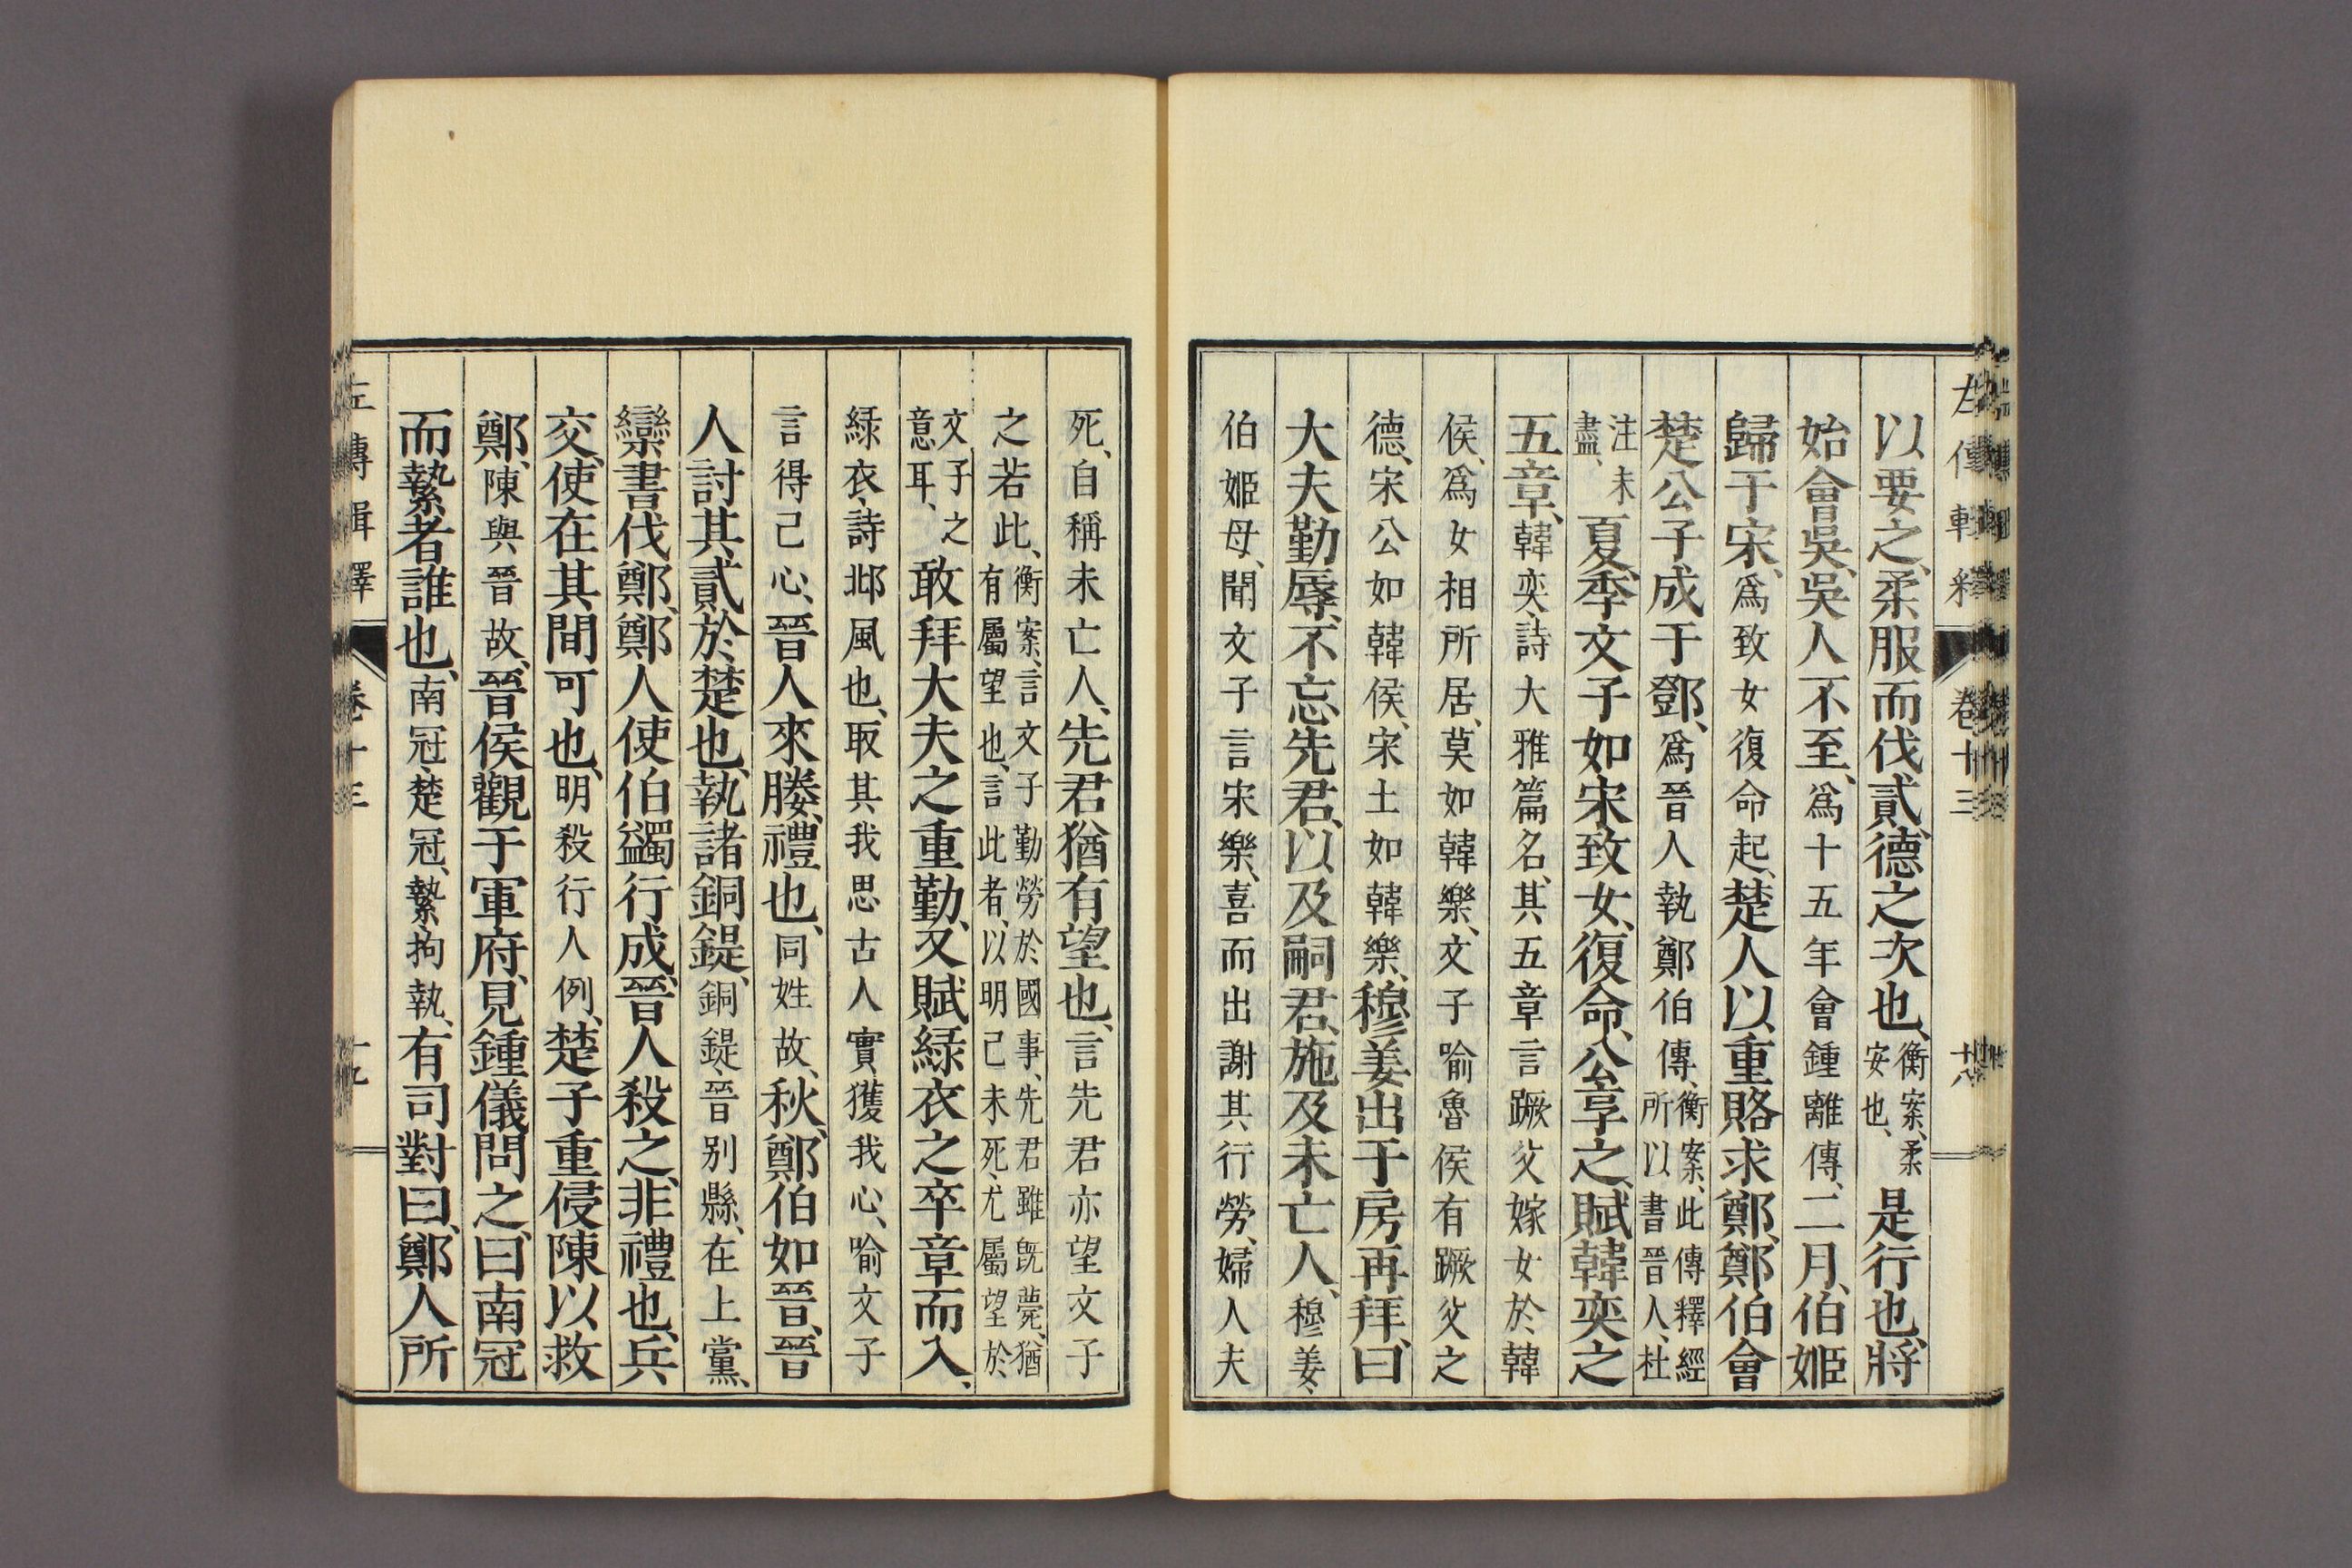 以要之、柔服而伐貳、德之次也、衡案、柔安也、是行也、將
始會吳、吳人不至、爲十五年會鍾離傳、二月、伯姬
歸于宋、爲致女復命起、楚人以重賂求鄭、鄭伯會
楚公子成于鄧、爲晉人執鄭伯傳、衡案、此傳釋經所以書晉人、杜
注未盡、夏、季文子如宋致女、復命、公享之、賦韓奕之
五章、韓奕、詩大雅篇名、其五章言蹶父嫁女於韓
侯、爲女相所居、莫如韓樂、文子喻魯侯有蹶父之
德、宋公如韓侯、宋土如韓樂、穆姜出于房再拜、曰
大夫勤辱、不忘先君、以及嗣君、施及未亡人、穆姜、
伯姬母、聞文子言宋樂、喜而出謝其行勞、婦人夫
左傳輯釋 卷十三 十八
死、自稱未亡人、先君猶有望也、言先君亦望文子
之若此、衡案、言文子勤勞於國事、先君雖既薨、猶有屬望也、言此者、以明己未死、尤屬望於
文子之意耳、敢拜大夫之重勤、又賦綠衣之卒章而入、
綠衣、詩邶風也、取其我思古人實獲我心、喻文子
言得己心、晉人來媵、禮也、同姓故、秋、鄭伯如晉、晉
人討其貳於楚也、執諸銅鍉、銅鍉、晉別縣、在上黨、
欒書伐鄭、鄭人使伯蠲行成、晉人殺之、非禮也、兵
交、使在其間可也、明殺行人例、楚子重侵陳以救
鄭、陳與晉故、晉侯觀于軍府、見鍾儀問之、曰南冠
而縶者誰也、南冠、楚冠、縶、拘執、有司對曰、鄭人所
左傳輯釋 卷十三 十九